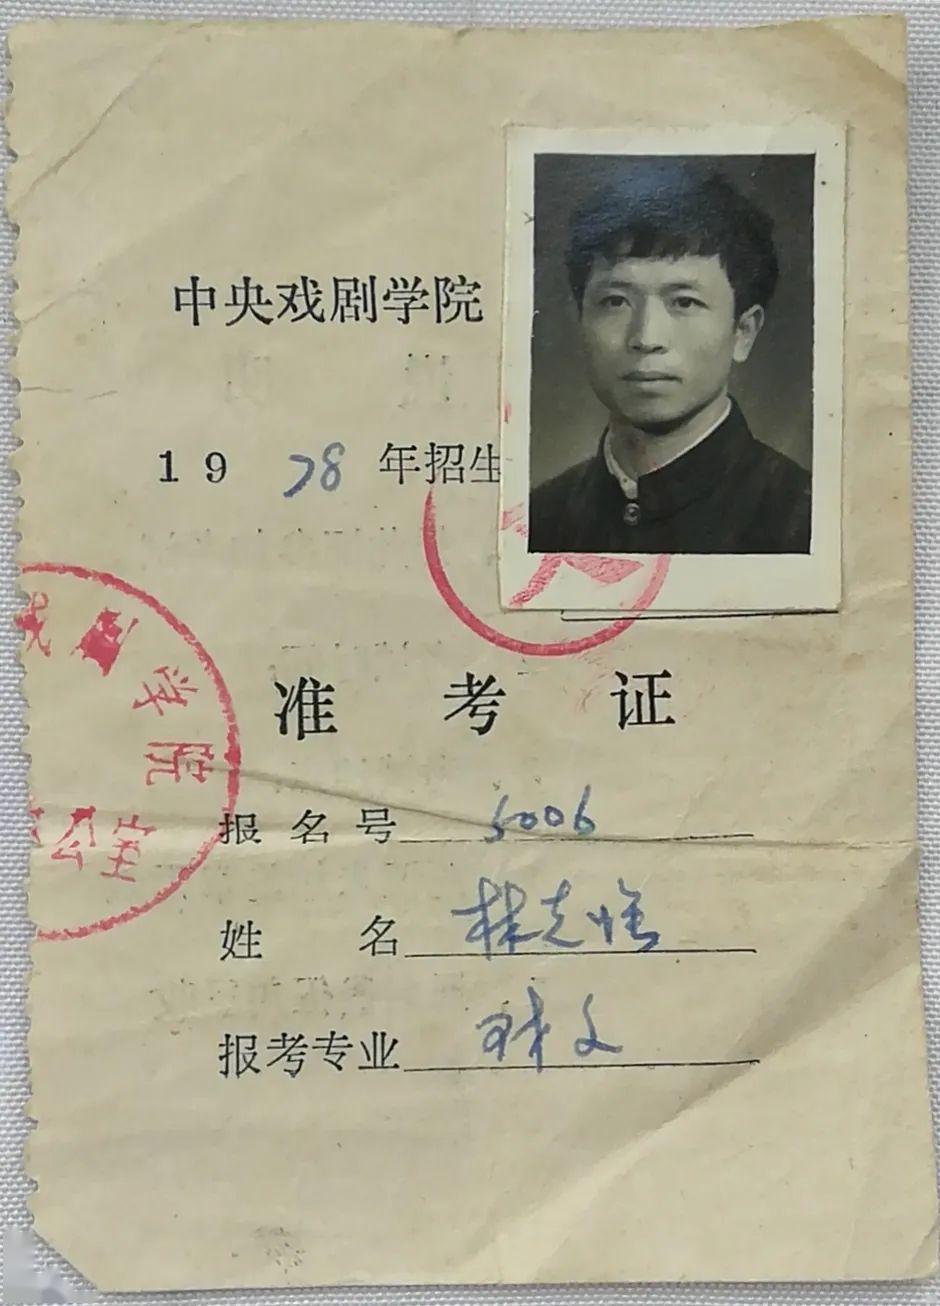 中央戏剧学院
1978年招生
准考证
剧学院
公室
报名号 5006
姓名 林克
报考专业 戏文